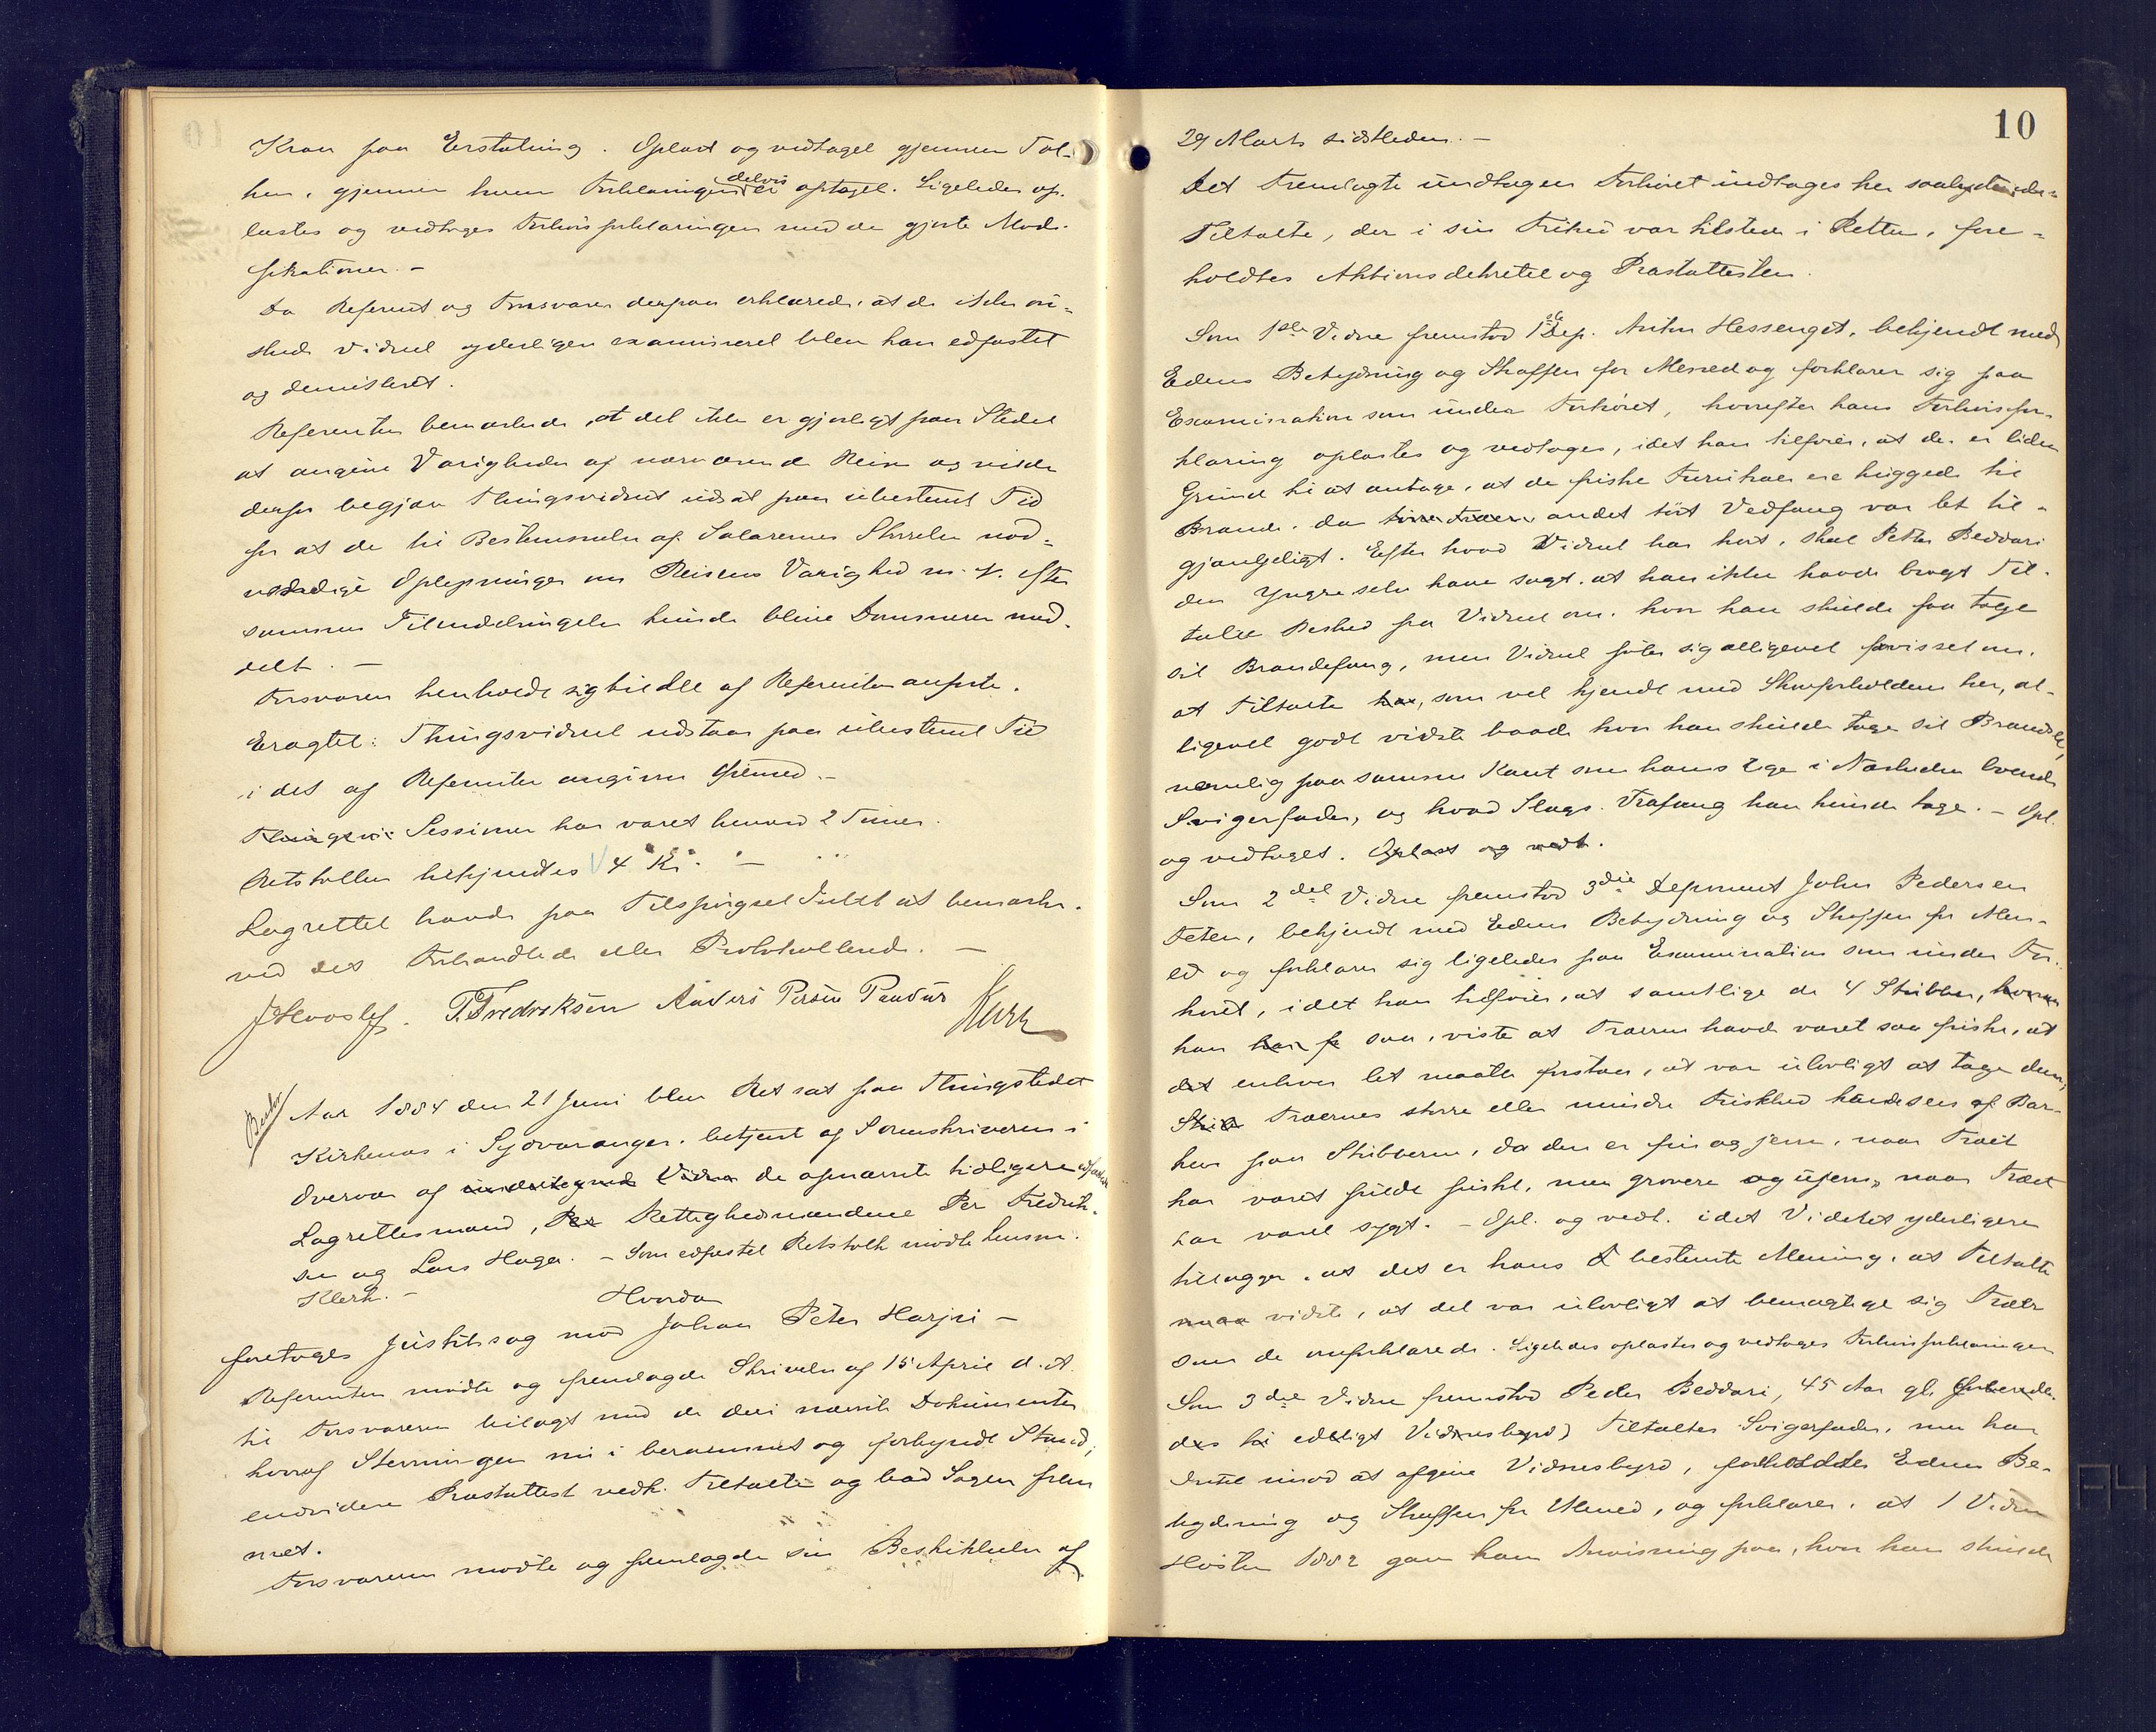 Krav paa Erstatning. Oplæst og vedtaget gjennem Tol-
ken, gjennem hvem Forklaringen delvis er optaget. Ligeledes op-
læstes og vedtoges Forhørsforklaringen med de gjorte Modi-
fikationer. –
Da Referent og Forsvarer derpaa erklærede, at de ikke øn-
skede Vidnet yderligere examineret blev han edfæstet
og demitteret.
Referenten bemærkede, at det ikke er gjørligt paa Stedet
at angive Varigheden af nærværende Reise og vilde
derfor begjære Thingsvidnet udsat paa ubestemt Tid
for at de til Bestemmelse af Salærernes Størrelse nød-
vendige Oplysninger om Reisens Varighed m. v. efter
sammes Tilendebringelse kunde blive Dommeren med-
delt. –
Forsvareren henholdt sig til det af Referenten anførte.
Eragtet: Thingsvidnet udstaar paa ubestemt Tid
i det af Referenten angivne Øiemed. –
Thingsvi Sessionen har varet henved 2 Timer.
Retsholken tilkjendtes 4 Kr. –
Lagrettet havde paa Tilspørgsel Intet at bemærke
ved det Forhandlede eller Protokollerede. –
P. Fredriksen Anders Persen
Aar 1884 den 21 Juni blev Ret sat paa Thingstedet
Kirkenæs i Sydvaranger, betjent af Sorenskriveren i
Overvær af undertegnede Vidner de opnævnte tidligere edfæstede
Lagrettesmænd, Per Rettighedsmændene Per Fredrik-
sen og Lars Hager. – Som edfæstet Retstolk mødte Lensm.
Klerk. –
Hvorda
foretoges Justitssag mod Johan Peter Harjei –
Referenten mødte og fremlagde Skrivelse af 15 April d. A.
til Forsvareren bilagt med de deri nævnte Dokumenter
hvoraf Stevningen nu i berammet og forkyndt Stand,
endvidere Præstattest vedk. Tiltalte og bad Sagen frem
met.
Forsvareren mødte og fremlagde sin Beskikkelse af
10
29 Marts sidstleden. –
Det Fremlagte undtagen Forhøret indtages her saalydende
Tiltalte, der i sin Frihed var tilstede i Retten, fore-
holdtes Aktionsdekretet og Præstattesten.
Som 1ste Vidne fremstod 1ste Dep. Anton Hessenget, bekjendt med
Edens Betydning og Straffen for Mened og forklarer sig paa
Examination som under Forhøret, hvorefter hans Forhørsfor-
klaring oplæstes og vedtoges, idet han tilføier, at der er liden
Grund til at antage, at de friske Furutræer ere huggede til
Brænde, da tørre Træer andet tørt Vedfang var let til-
gjængeligt. Efter hvad Vidnet har hørt, skal Petter Beddari
den Yngre selv have sagt, at han ikke havde bragt Til-
talte Besked fra Vidnet om, hvor han skulde faa tage
sit Brændefang, men Vidnet føler sig alligevel forvisset om,
at Tiltalte har, som vel kjendt med Skovforholdene her, al-
ligevel godt vidste baade hvor han skulde tage sit Brændsel,
nemlig paa samme Kant som hans lige i Nærheden boende
Svigerfader, og hvad Slags Træfang han kunde tage. – Opl.
og vedtaget. Oplæst og vedt.
Som 2det Vidne fremstod 3die Deponent John Pedersen
Teten, bekjendt med Edens Betydning og Straffen for Men-
ed og forklarer sig ligeledes paa Examination som under For-
høret, idet han tilføier, at samtlige de 4 Stubber, hvoraf
han har fr saa, viste at Træerne havde været saa friske, at
det enhver let maatte forstaa, at var ulovligt at tage dem,
Stub Træernes større eller mindre Friskhed kændes af Bar-
ken paa Stubberne, da den er fin og jevn, naar Træet
har været fuldt friskt, men grovere og ujevn, naar Træet
har været sygt. – Opl. og vedt. idet Vidnet yderligere
tillægger, at det er hans b bestemte Mening, at Tiltalte
maa vidste, at det var ulovligt at bemægtige sig Træer
som de omforklarede. Ligeledes oplæstes og vedtoges Forhørsforklaringen
Som 3die Vidne fremstod Peder Beddari, 45 Aar gl. (forberede-
des til edeligt Vidnesbyrd) Tiltaltes Svigerfader, men har
Intet imod at afgive Vidnesbyrd, foreholdtes Edens Be-
tydning og Straffen for Mened, og forklarer, at 1 Vidne
Høsten 1882 gav ham Anvisning paa, hvor han skulde